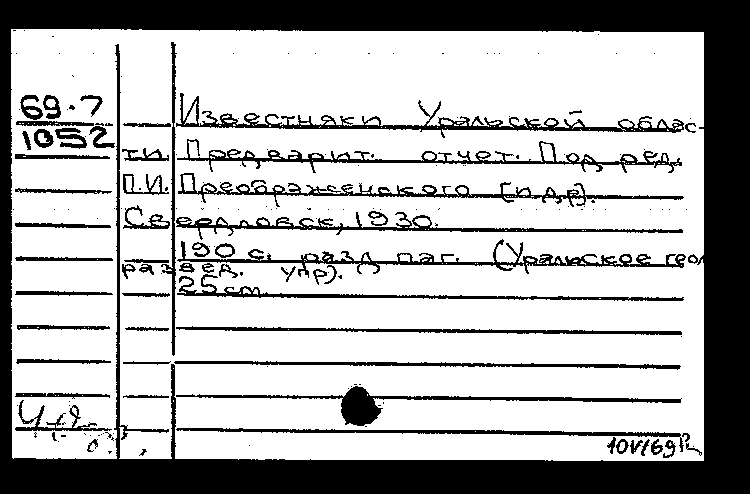 69.7
1052
Известняки Уральской облас-
ти. Предварит. отчет. Под ред.
П.И. Преображенского [и др].
Свердловск, 1930.
190 с. разд. паг. (Уральское геол
развед. упр).
25 cm
10V/69